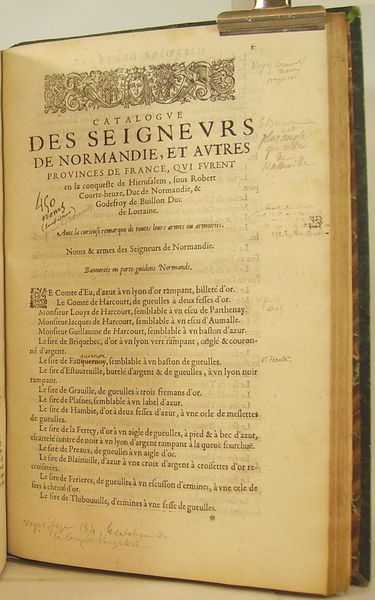 CATALOGVE
DES SEIGNEVRS
DE NORMANDIE, ET AVTRES
PROVINCES DE FRANCE, QVI FVRENT
en la conqueste de Hierusalem, sous Robert
Courte-heuze, Duc de Normandie, &
Godefroy de Buillon Duc
de Lorraine.
Auec la curieuse remarque de toutes leurs armes ou armoiries.
450
noms
Noms & armes des Seigneurs de Normandie.
Bannerets ou porte-guidons Normands.
LE Comte d'Eu, d'azur à vn lyon d'or rampant, billeré d'or.
Le Comte de Harcourt, de gueulles à deux fesses d'or.
Monsieur Louys de Harcourt, semblable à vn escu de Parthenay.
Monsieur Iacques de Harcourt, semblable à vn escu d'Aumalle.
Monsieur Guillaume de Harcourt, semblable à vn baston d'azur.
Le sire de Briquebec, d'or à vn lyon vert rampant, onglé & couron-
né d'argent.
Le sire de Fauquernoy, semblable à vn baston de gueulles.
Le sire d'Estouteuille, burelé d'argent & de gueulles, à vn lyon noir
rampant.
Le sire de Grauille, de gueulles à trois fremans d'or.
Le sire de Plasnes, semblable à vn label d'azur.
Le sire de Hambie, d'or à deux fesses d'azur, à vne orle de meslettes
de gueulles.
Le sire de la Fertey, d'or à vn aigle de gueulles, à pied & à bec d'azur,
escartelé contre de noir à vn lyon d'argent rampant à la queuë fourchuë.
Le sire de Preaux, de gueulles à vn aigle d'or.
Le sire de Blainuille, d'azur à vne croix d'argent à croisettes d'or re-
croisettées.
Le sire de Ferieres, de gueulles à vn escusson d'ermines, à vne orle de
fers à cheual d'or.
Le sire de Thibouuille, d'ermines à vne fesse de gueulles.
Voyez page 184, le catalogue de